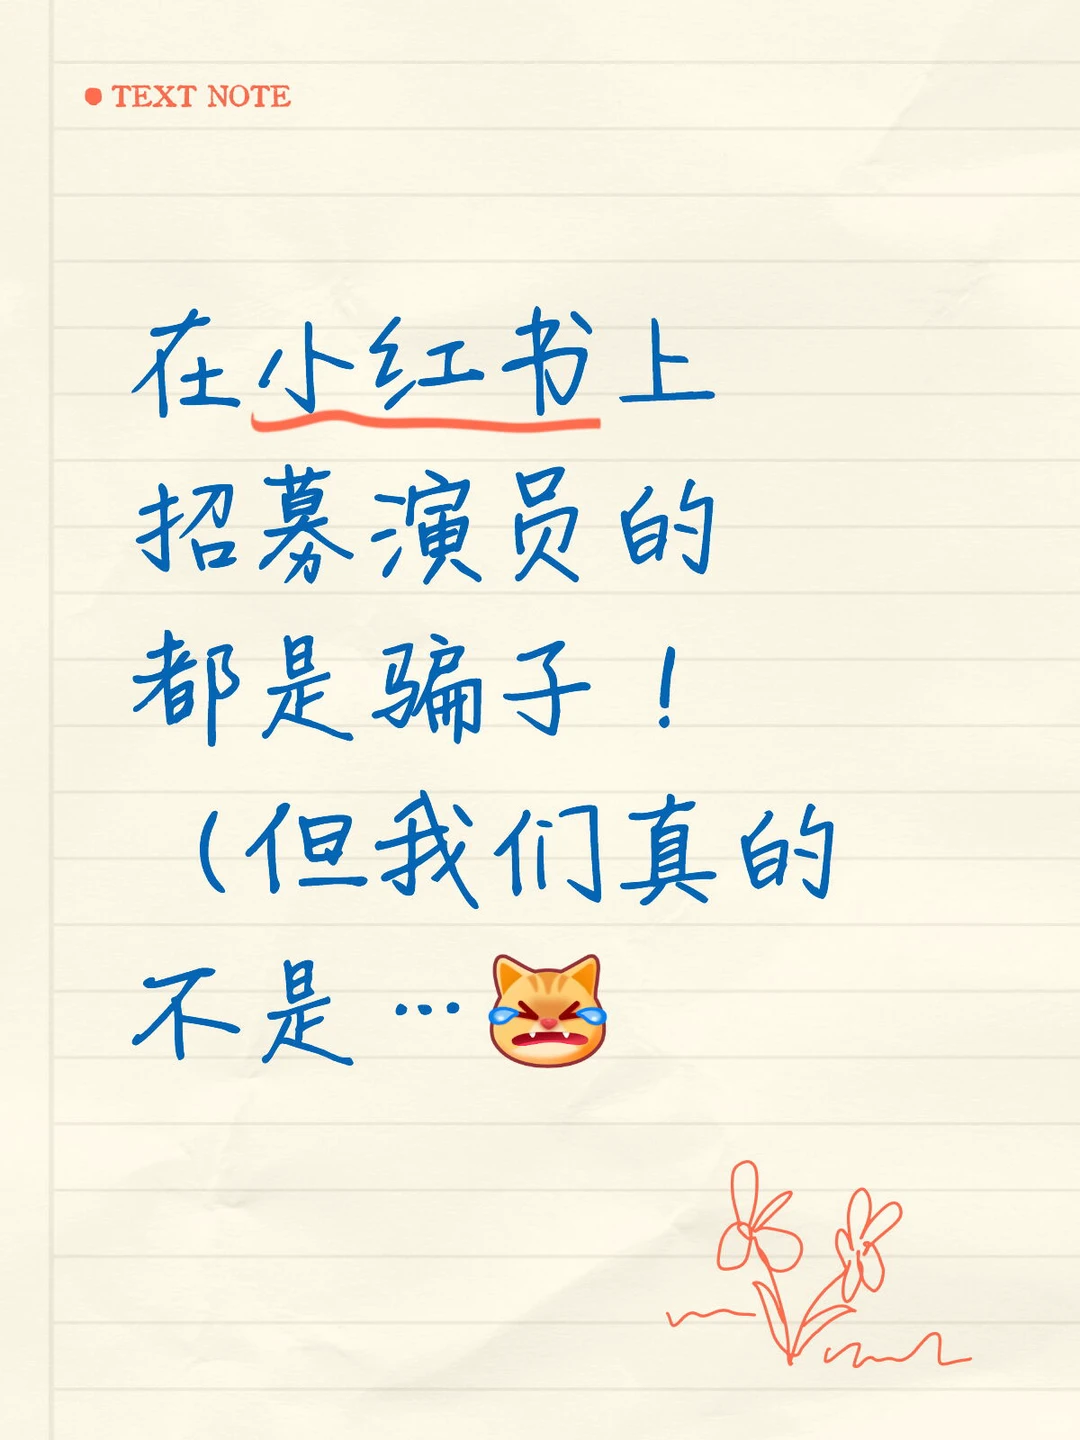 TEXT NOTE
在小红书上
招募演员的
都是骗子！
（但我们真的
不是…